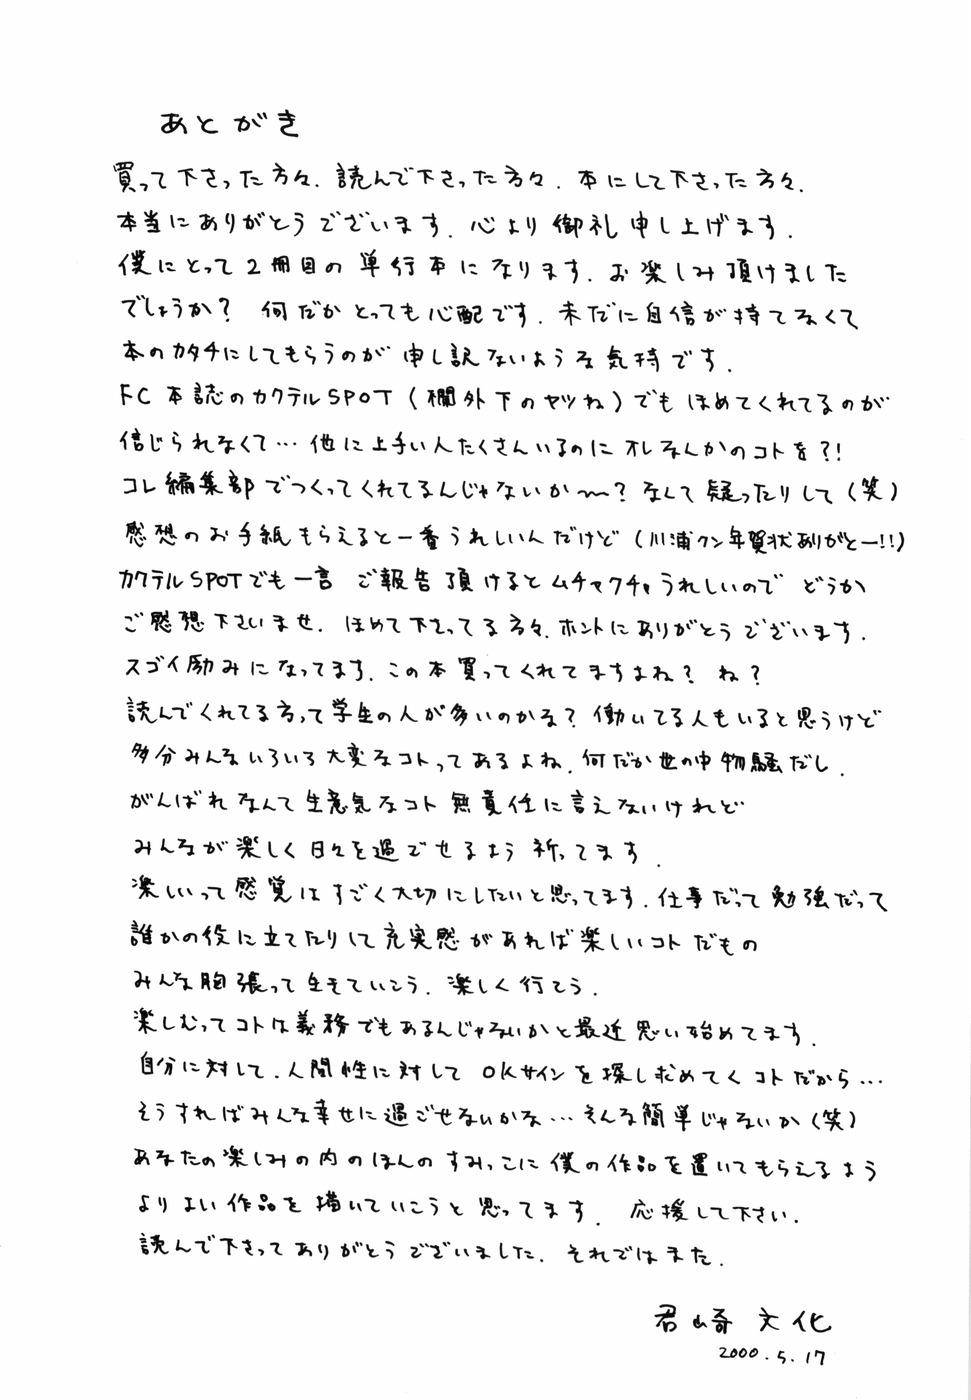 あとがき
買って下さった方々、読んで下さった方々、本にして下さった方々、
本当にありがとうございます。心より御礼申し上げます。
僕にとって2冊目の単行本になります。お楽しみ頂けました
でしょうか？ 何だかとっても心配です。未だに自信が持てなくて
本のカタチにしてもらうのが申し訳ないような気持です。
FC本誌のカクテルSPOT（欄外下のヤツね）でもほめてくれてるのが
信じられなくて…他に上手い人たくさんいるのにオレなんかのコトを？！
コレ編集部でつくってくれてるんじゃないか〜？なんて疑ったりして（笑）
感想のお手紙もらえると一番うれしいんだけど（川浦クン年賀状ありがとー!!）
カクテルSPOTでも一言ご報告頂けるとムチャクチャうれしいのでどうか
ご感想下さいませ。ほめて下さってる方々、ホントにありがとうございます。
スゴイ励みになってます。この本買ってくれてますよね？ね？
読んでくれてる方って学生の人が多いのかな？働いてる人もいると思うけど
多分みんないろいろ大変なコトってあるよね。何だか世の中物騒だし。
がんばれなんて生意気なコト無責任に言えないけれど
みんなが楽しく日々を過ごせるよう祈ってます。
楽しいって感覚はすごく大切にしたいと思ってます。仕事だって勉強だって
誰かの役に立てたりして充実感があれば楽しいコトだもの
みんな胸張って生きていこう。楽しく行こう。
楽しむってコトは義務でもあるんじゃないかと最近思い始めてます。
自分に対して、人間性に対してOKサインを探し求めてくコトだから…
そうすればみんな幸せに過ごせないかな…そんな簡単じゃないか（笑）
あなたの楽しみの内のほんのすみっこに僕の作品を置いてもらえるよう
よりよい作品を描いていこうと思ってます。応援して下さい。
読んで下さってありがとうございました。それではまた。
君崎文化
2000.5.17